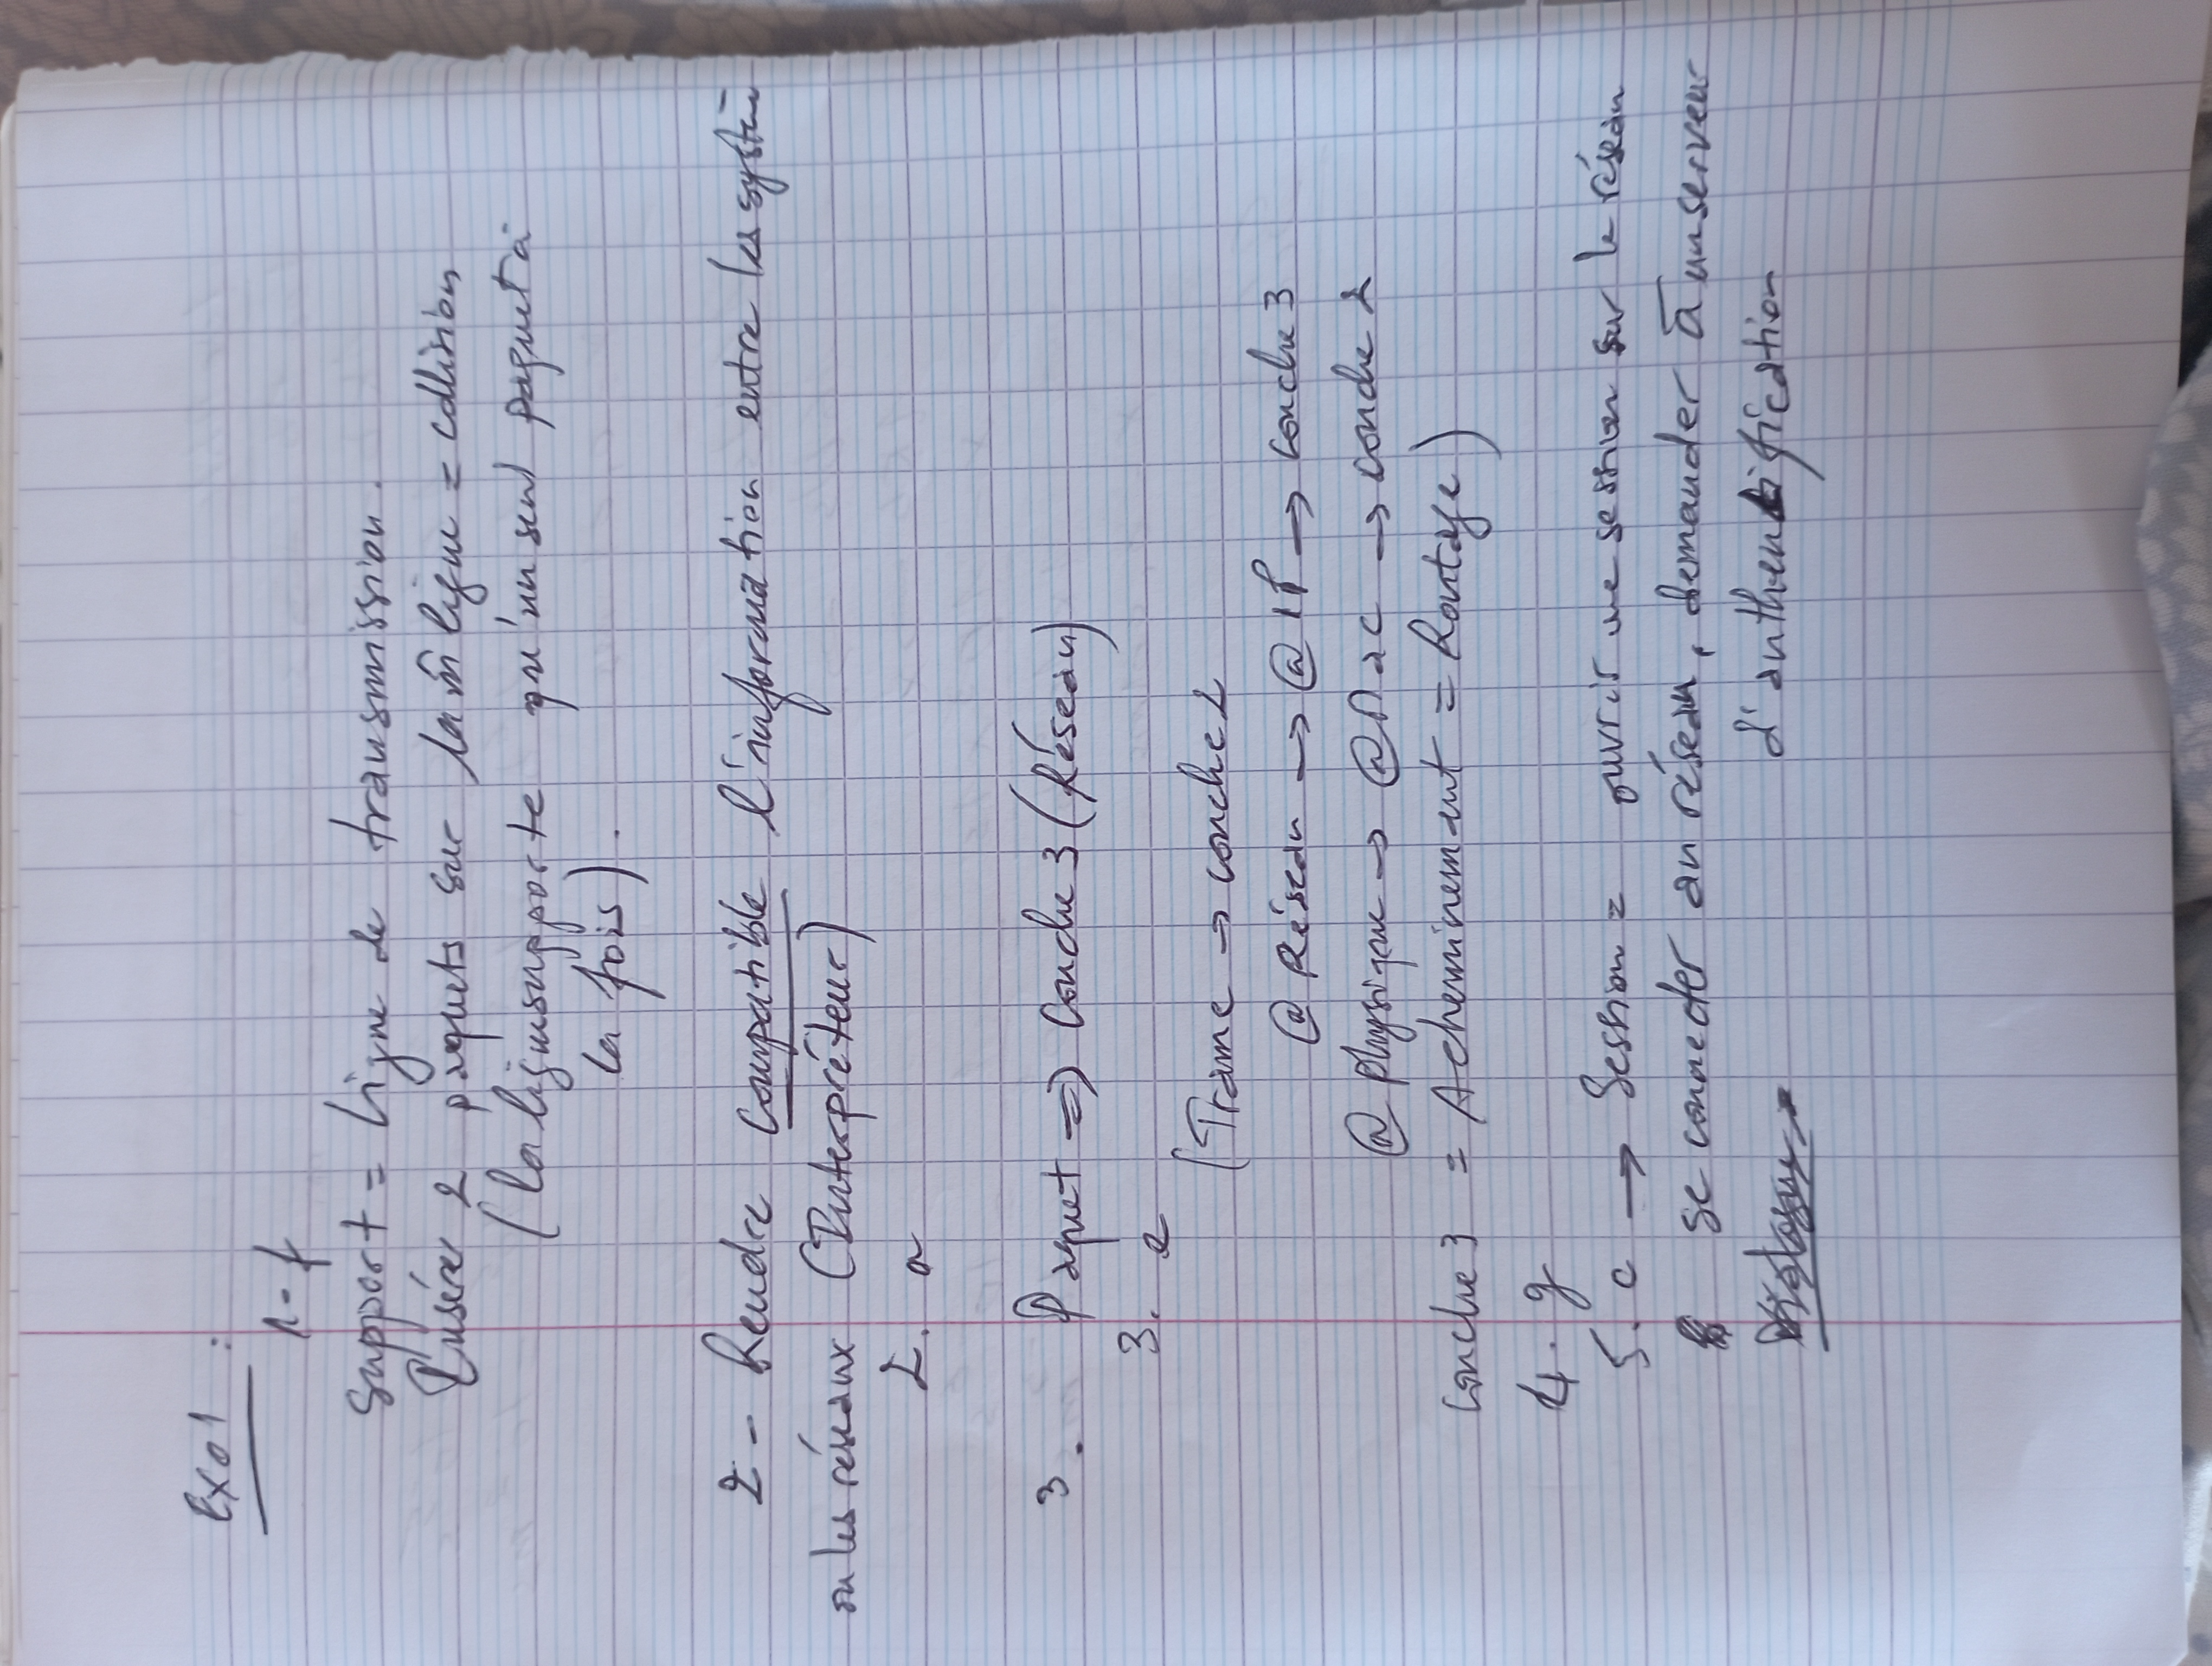 Exo1 :
1 - f
Support = ligne de transmission.
Insérer 2 paquets sur la m̂ ligne = collision
(la ligne supporte qu'un seul paquet à
la fois).
2 - Rendre compatible l'information entre les system
ou les réseaux (Interpréteur)
2. a
3. Paquet => couche 3 (Réseau)
3. e
(Trame → couche 2
@ Réseau → @ IP → couche 3
@ physique → @ Mac → couche 2
couche 3 = Acheminement = Routage)
4. g
5. c → Session = ouvrir une session sur le réseau
se connecter au réseau, demander à un serveur
d'authentification